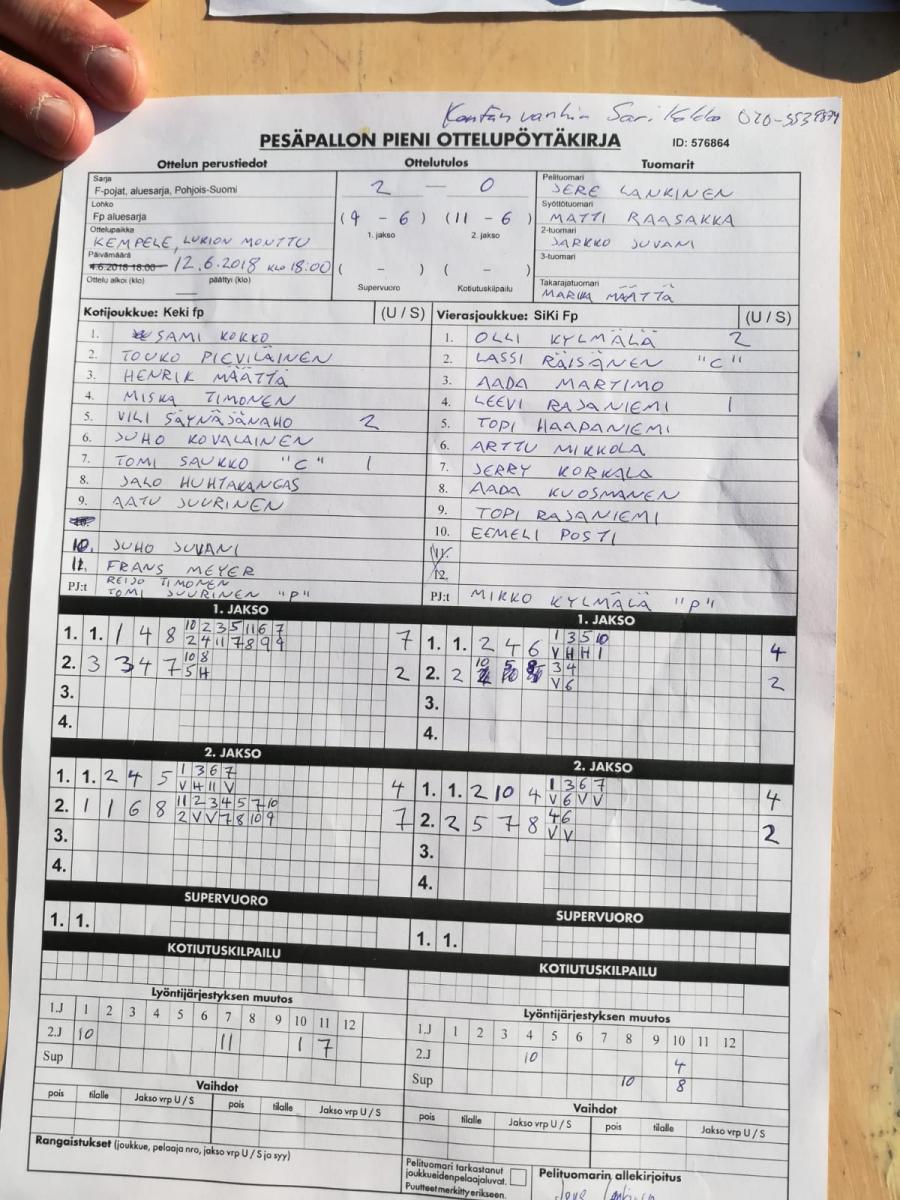 Kentän vanhin Sari Kokko
PESÄPALLON PIENI OTTELUPÖYTÄKIRJA ID: 576864
Ottelun perustiedot Ottelutulos Tuomarit
Sarja
F-pojat, aluesarja, Pohjois-Suomi
Lohko
Fp aluesarja
Ottelupaikka
KEMPELE, LUKION MONTTU
Päivämäärä
4.6.2018 18:00 12.6.2018 KLO 18:00
Ottelu alkoi (klo) päättyi (klo)
2 — 0
(9 - 6) (11 - 6)
1. jakso 2. jakso
( - ) ( - )
Supervuoro Kotiutuskilpailu
Pelituomari
JERE LANKINEN
Syöttötuomari
MATTI RAASAKKA
2-tuomari
JARKKO JUVANI
3-tuomari
Takarajatuomari
MARIKA MÄÄTTÄ
Kotijoukkue: Keki fp (U / S)
1. SAMI KOKKO
2. TOUKO PIEVILÄINEN
3. HENRIK MÄÄTTÄ
4. MISKA TIMONEN
5. VILI SÄYNÄJÄNAHO 2
6. JUHO KOVALAINEN
7. TOMI SAUKKO "C" 1
8. JALO HUHTAKANGAS
9. AATU JUURINEN
10. JUHO JUVANI
11. FRANS MEYER
PJ:t REIJO TIMONEN
TOMI JUURINEN "P"
Vierasjoukkue: SiKi Fp (U / S)
1. OLLI KYLMÄLÄ 2
2. LASSI RÄISÄNEN "C"
3. AADA MARTIMO
4. LEEVI RAJANIEMI 1
5. TOPI HAAPANIEMI
6. ARTTU MIKKOLA
7. JERRY KORKALA
8. AADA KUOSMANEN
9. TOPI RAJANIEMI
10. EEMELI POSTI
11.
12.
PJ:t MIKKO KYLMÄLÄ "P"
1. JAKSO
10 2 3 5 11 6 7
1. 1. 1 4 8 2 4 11 7 8 9 9 7
10 8
2. 3 3 4 7 5 H 2
3.
4.
1. JAKSO
1 3 5 10
1. 1. 2 4 6 V H H 1 4
3 4
2. 2 V 6 2
3.
4.
2. JAKSO
1 3 6 7
1. 1. 2 4 5 V H 11 V 4
11 2 3 4 5 7 10
2. 1 1 6 8 2 V V 7 8 10 9 7
3.
4.
2. JAKSO
1 3 6 7
1. 1. 2 10 4 V 6 V V 4
4 6
2. 2 5 7 8 V V 2
3.
4.
SUPERVUORO
1. 1.
SUPERVUORO
1. 1.
KOTIUTUSKILPAILU
KOTIUTUSKILPAILU
Lyöntijärjestyksen muutos
1.J 1 2 3 4 5 6 7 8 9 10 11 12
2.J 10 11 1 7
Sup
Lyöntijärjestyksen muutos
1.J 1 2 3 4 5 6 7 8 9 10 11 12
2.J 10 4
Sup 10 8
Vaihdot
pois tilalle Jakso vrp U / S pois tilalle Jakso vrp U / S
Vaihdot
pois tilalle Jakso vrp U / S pois tilalle Jakso vrp U / S
Rangaistukset (joukkue, pelaaja nro, jakso vrp U / S ja syy)
Pelituomari tarkastanut
joukkueidenpelaajaluvat.
Puutteet merkitty erikseen.
Pelituomarin allekirjoitus